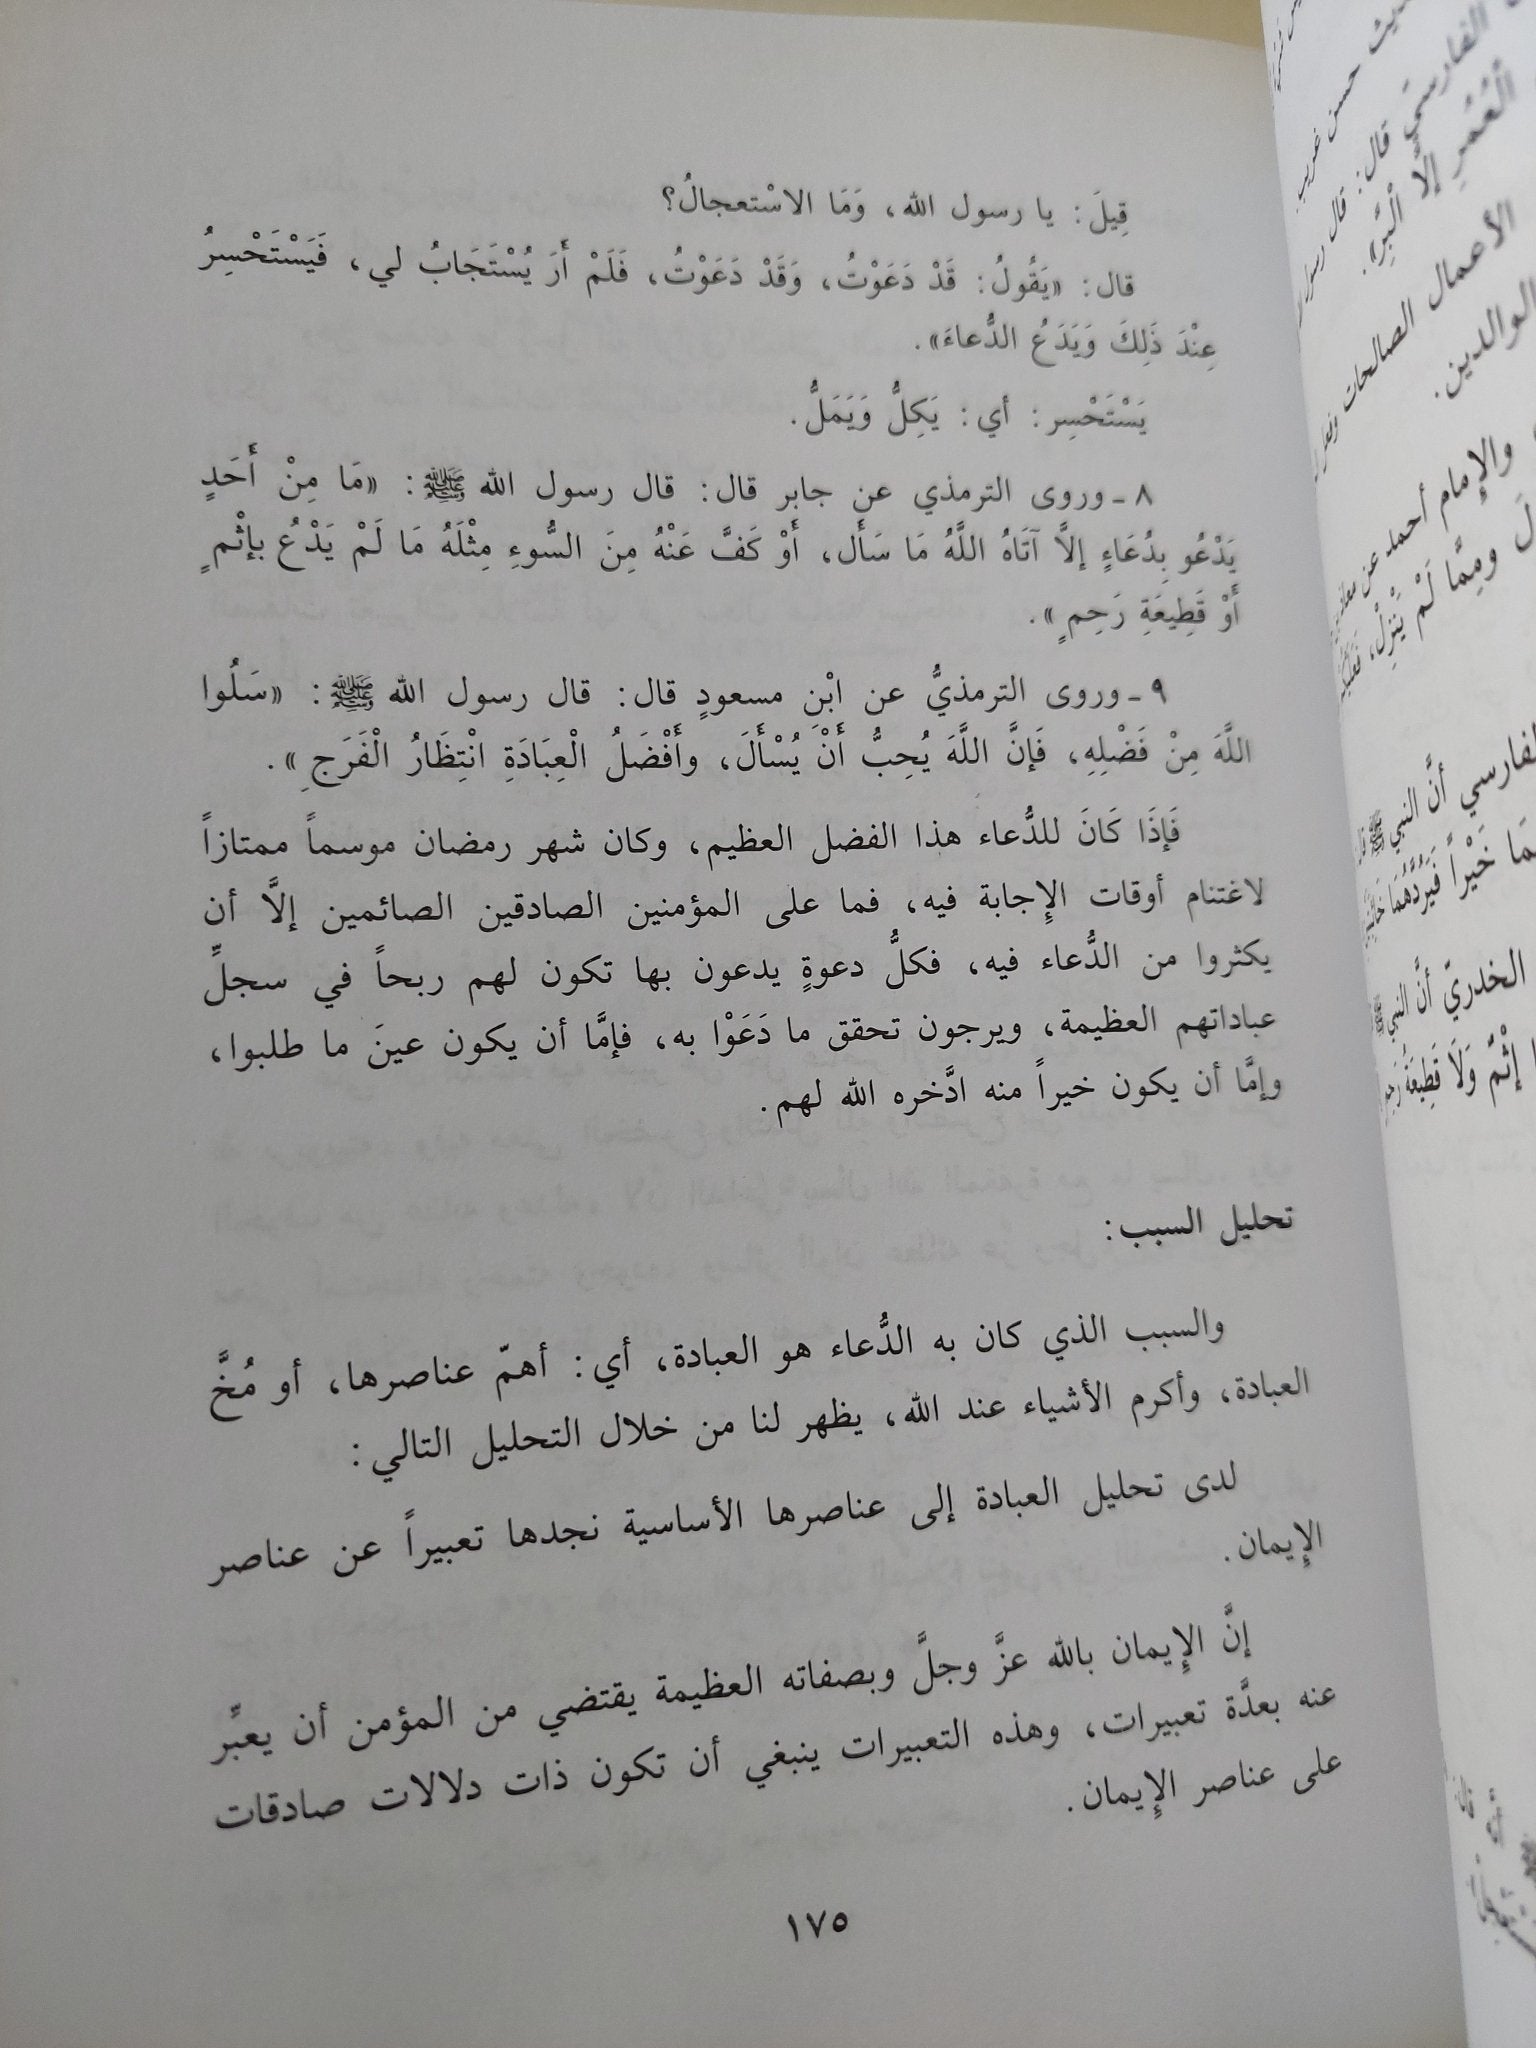 قِيلَ: يا رسول الله، وَمَا الاسْتعجالُ؟
قال: «يَقُولُ: قَدْ دَعَوْتُ، وَقَدْ دَعَوْتُ، فَلَمْ أَرَ يُسْتَجَابُ لي، فَيَسْتَحْسِرُ
عِنْدَ ذَلِكَ وَيَدَعُ الدُّعاءَ».
يَسْتَحْسِر: أي: يَكِلُّ وَيَمَلُّ.
٨ ـ وروى الترمذي عن جابر قال: قال رسول الله ﷺ: «مَا مِنْ أَحَدٍ
يَدْعُو بِدُعَاءٍ إلاَّ آتَاهُ اللَّهُ مَا سَأَل، أَوْ كَفَّ عَنْهُ مِنَ السُّوءِ مِثْلَهُ مَا لَمْ يَدْعُ بإثْمٍ
أَوْ قَطِيعَةِ رَحِمٍ».
٩ ـ وروى الترمذيُّ عن ابْن مسعودٍ قال: قال رسول الله ﷺ: «سَلُوا
اللَّهَ مِنْ فَضْلِهِ، فَإنَّ اللَّهَ يُحِبُّ أَنْ يُسْأَلَ، وأَفْضَلُ الْعِبَادَةِ انْتِظَارُ الْفَرَجِ».
فَإذَا كَانَ للدُّعاء هذا الفضل العظيم، وكان شهر رمضان موسماً ممتازاً
لاغتنام أوقات الإِجابة فيه، فما على المؤمنين الصادقين الصائمين إلاَّ أن
يكثروا من الدُّعاء فيه، فكلُّ دعوةٍ يدعون بها تكون لهم ربحاً في سجلِّ
عباداتهم العظيمة، ويرجون تحقق ما دَعَوْا به، فإمَّا أن يكون عينَ ما طلبوا،
وإمَّا أن يكون خيراً منه ادَّخره الله لهم.
تحليل السبب:
والسبب الذي كان به الدُّعاء هو العبادة، أي: أهمّ عناصرها، أو مُخَّ
العبادة، وأكرم الأشياء عند الله، يظهر لنا من خلال التحليل التالي:
لدى تحليل العبادة إلى عناصرها الأساسية نجدها تعبيراً عن عناصر
الإِيمان.
إنَّ الإِيمان بالله عزَّ وجلَّ وبصفاته العظيمة يقتضي من المؤمن أن يعبِّر
عنه بعدَّة تعبيرات، وهذه التعبيرات ينبغي أن تكون ذات دلالات صادقات
على عناصر الإِيمان.
١٧٥
حسن غريب.
الفارسي قال: قال رسول
الْعُمْرِ إلاَّ الْبِرُّ».
الأعمال الصالحات
الوالدين.
والإِمام أحمد عن
ومِمَّا لَمْ يَنْزِلْ،
أنَّ النبي ﷺ
خَيْراً فَيَرُدَّهُمَا
الخدريّ أنَّ النبي ﷺ
إثْمٌ وَلاَ قَطِيعَةُ